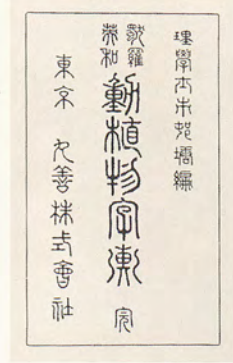 理學士市邨塘編
獨羅
英和
動植物字彙 完
東京 丸善株式會社